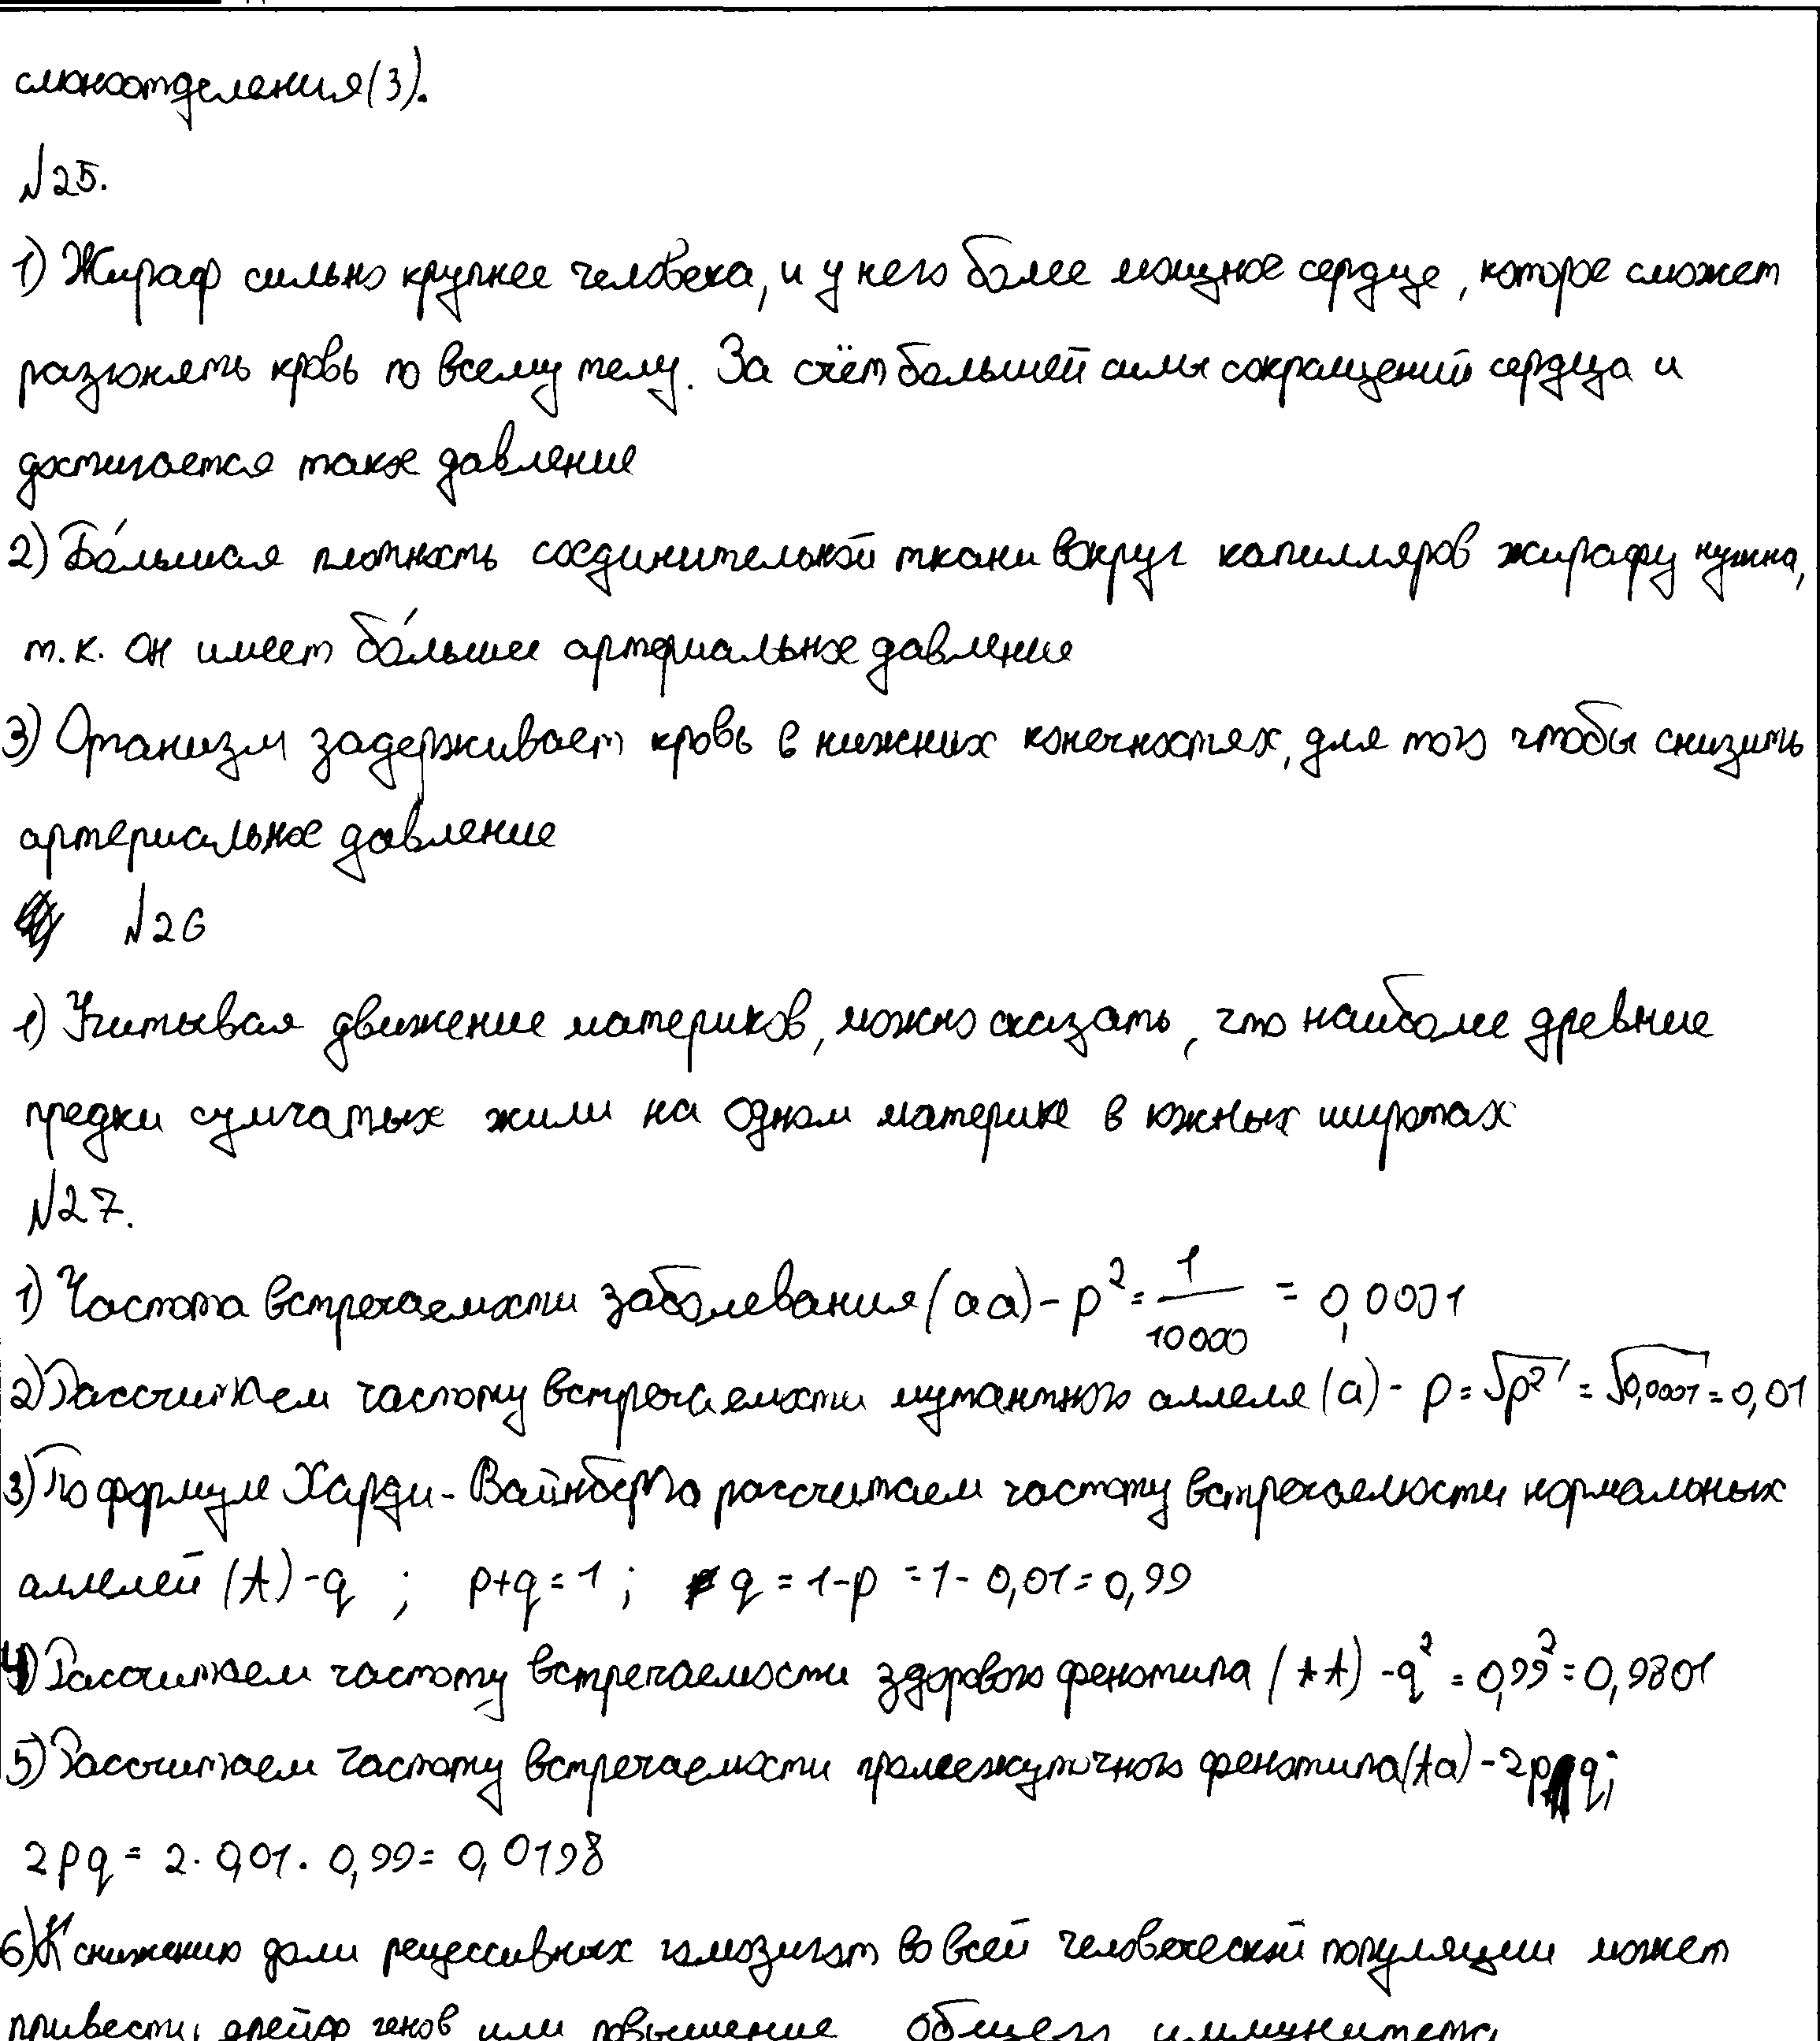 слюноотделения(3).
№25.
1) Жираф сильно крупнее человека, и у него более мощное сердце, которое сможет
разгонять кровь по всему телу. За счёт большей силы сокращений сердца и
достигается такое давление
2) Бо́льшая плотность соединительной ткани вокруг капилляров жирафу нужна,
т.к. он имеет бо́льшее артериальное давление
3) Организм задерживает кровь в нижних конечностях, для того чтобы снизить
артериальное давление
№26
1) Учитывая движение материков, можно сказать, что наиболее древние
предки сумчатых жили на одном материке в южных широтах
№27.
1) Частота встречаемости заболевания (aa) - p² = 1/10000 = 0,0001
2) Рассчитаем частоту встречаемости мутантного аллеля (a) - p = √p² = √0,0001 = 0,01
3) По формуле Харди-Вайнберга рассчитаем частоту встречаемости нормальных
аллелей (A) - q ; p+q = 1 ; q = 1-p = 1 - 0,01 = 0,99
4) Рассчитаем частоту встречаемости здорового фенотипа (AA) - q² = 0,99² = 0,9801
5) Рассчитаем частоту встречаемости промежуточного фенотипа (Aa) - 2pq;
2pq = 2 · 0,01 · 0,99 = 0,0198
6) К снижению доли рецессивных гомозигот во всей человеческой популяции может
привести дрейф генов или повышение общего иммунитета